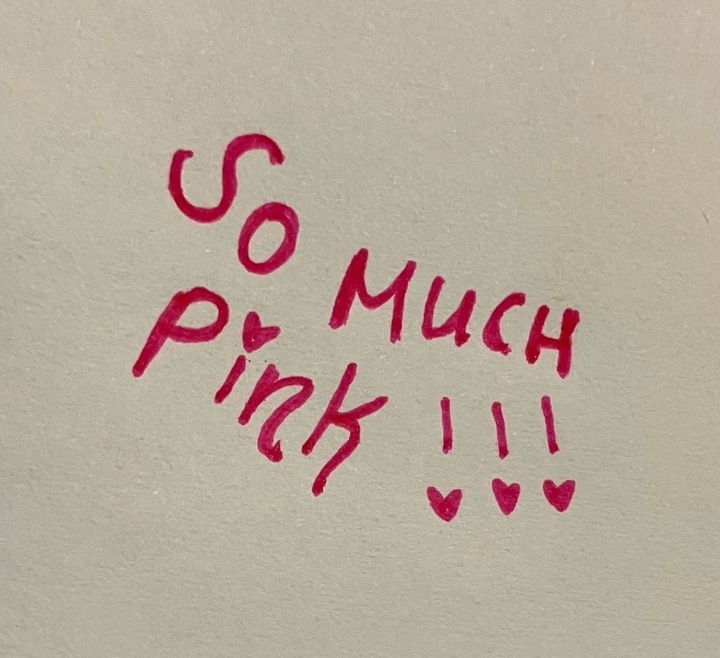 SO MUCH
Pink !!!